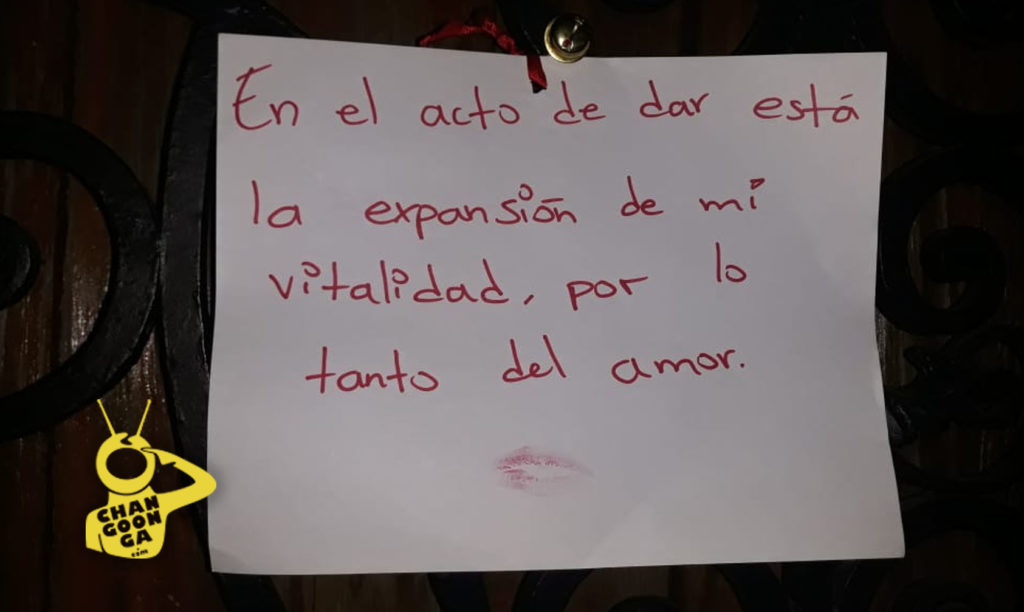 En el acto de dar está
la expansión de mi
vitalidad, por lo
tanto del amor.
CHAN
GOON
GA
.com